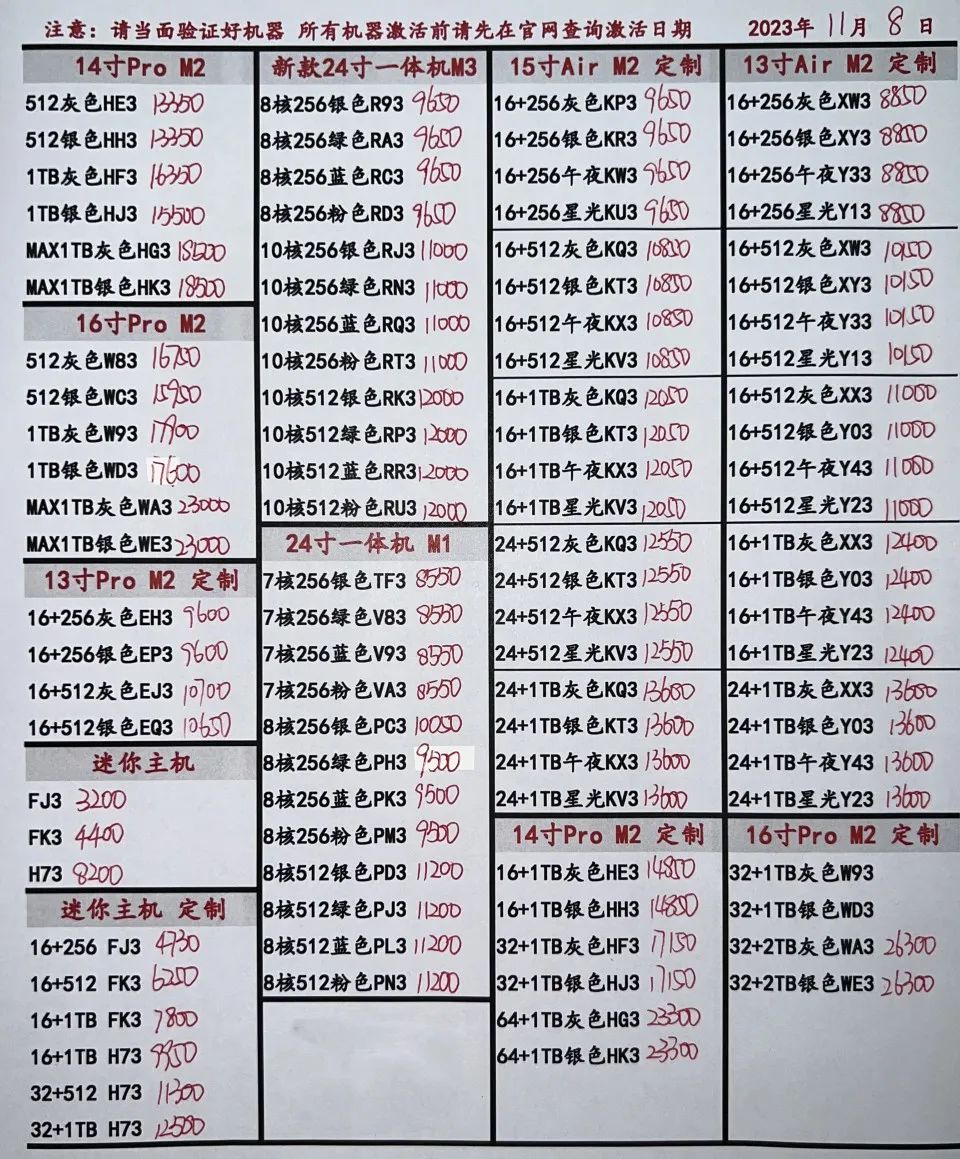 注意：请当面验证好机器 所有机器激活前请先在官网查询激活日期 2023年 11月 8日
14寸Pro M2
512灰色HE3 13350
512银色HH3 13350
1TB灰色HF3 16350
1TB银色HJ3 15500
MAX1TB灰色HG3
MAX1TB银色HK3 18500
16寸Pro M2
512灰色W83 16750
512银色WC3 15950
1TB灰色W93 17900
1TB银色WD3 17600
MAX1TB灰色WA3 23000
MAX1TB银色WE3 23000
13寸Pro M2 定制
16+256灰色EH3 9600
16+256银色EP3 9600
16+512灰色EJ3 10700
16+512银色EQ3 10650
迷你主机
FJ3 3200
FK3 4400
H73 8200
迷你主机 定制
16+256 FJ3 4730
16+512 FK3 6250
16+1TB FK3 7800
16+1TB H73
32+512 H73 11300
32+1TB H73 12500
新款24寸一体机M3
8核256银色R93 9650
8核256绿色RA3 9650
8核256蓝色RC3 9650
8核256粉色RD3 9650
10核256银色RJ3 11000
10核256绿色RN3 11000
10核256蓝色RQ3 11000
10核256粉色RT3 11000
10核512银色RK3 12000
10核512绿色RP3 12000
10核512蓝色RR3 12000
10核512粉色RU3 12000
24寸一体机 M1
7核256银色TF3 8550
7核256绿色V83 8550
7核256蓝色V93 8550
7核256粉色VA3 8550
8核256银色PC3 10050
8核256绿色PH3 9500
8核256蓝色PK3 9500
8核256粉色PM3 9500
8核512银色PD3 11200
8核512绿色PJ3 11200
8核512蓝色PL3 11200
8核512粉色PN3 11200
15寸Air M2 定制
16+256灰色KP3 9650
16+256银色KR3 9650
16+256午夜KW3 9650
16+256星光KU3 9650
16+512灰色KQ3 10850
16+512银色KT3 10850
16+512午夜KX3 10850
16+512星光KV3 10850
16+1TB灰色KQ3 12050
16+1TB银色KT3 12050
16+1TB午夜KX3 12050
16+1TB星光KV3 12050
24+512灰色KQ3 12550
24+512银色KT3 12550
24+512午夜KX3 12550
24+512星光KV3 12550
24+1TB灰色KQ3 13600
24+1TB银色KT3 13600
24+1TB午夜KX3 13600
24+1TB星光KV3 13600
14寸Pro M2 定制
16+1TB灰色HE3 14850
16+1TB银色HH3 14850
32+1TB灰色HF3 17150
32+1TB银色HJ3 17150
64+1TB灰色HG3 23300
64+1TB银色HK3 23300
13寸Air M2 定制
16+256灰色XW3 8850
16+256银色XY3 8850
16+256午夜Y33 8850
16+256星光Y13 8850
16+512灰色XW3 10150
16+512银色XY3 10150
16+512午夜Y33 10150
16+512星光Y13 10150
16+512灰色XX3 11000
16+512银色Y03 11000
16+512午夜Y43 11000
16+512星光Y23 11000
16+1TB灰色XX3 12400
16+1TB银色Y03 12400
16+1TB午夜Y43 12400
16+1TB星光Y23 12400
24+1TB灰色XX3 13600
24+1TB银色Y03 13600
24+1TB午夜Y43 13600
24+1TB星光Y23 13600
16寸Pro M2 定制
32+1TB灰色W93
32+1TB银色WD3
32+2TB灰色WA3 26300
32+2TB银色WE3 26300